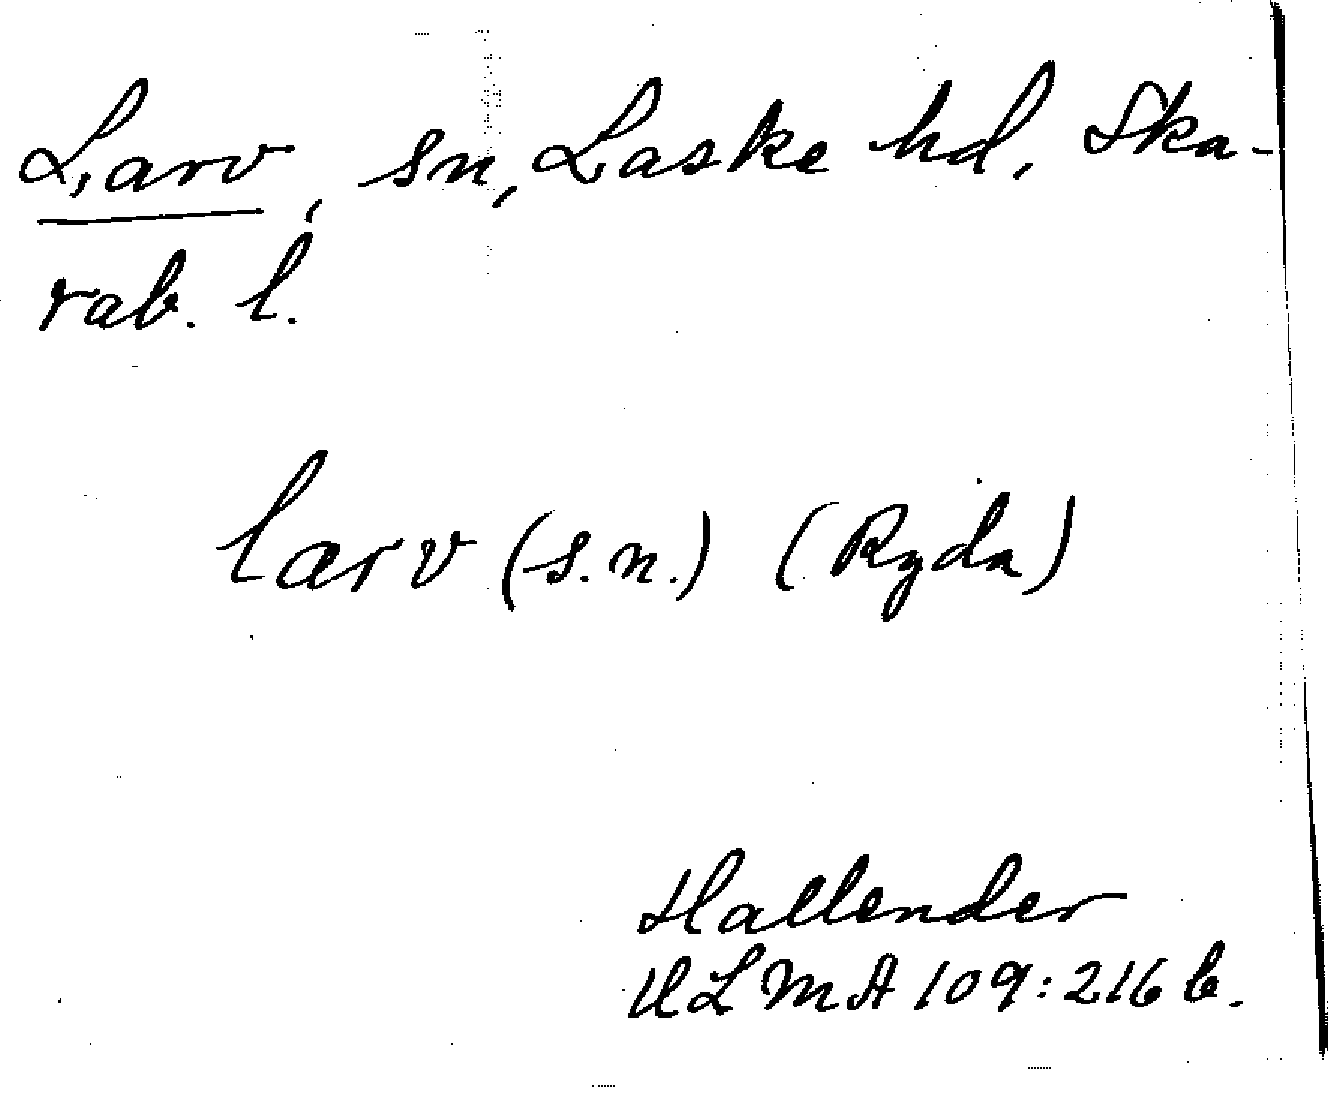 Larv, sn, Laske hd, Ska-
rab. l.
larv (s.n.) (Ryda)
Hallender
ULMA 109:216 b.